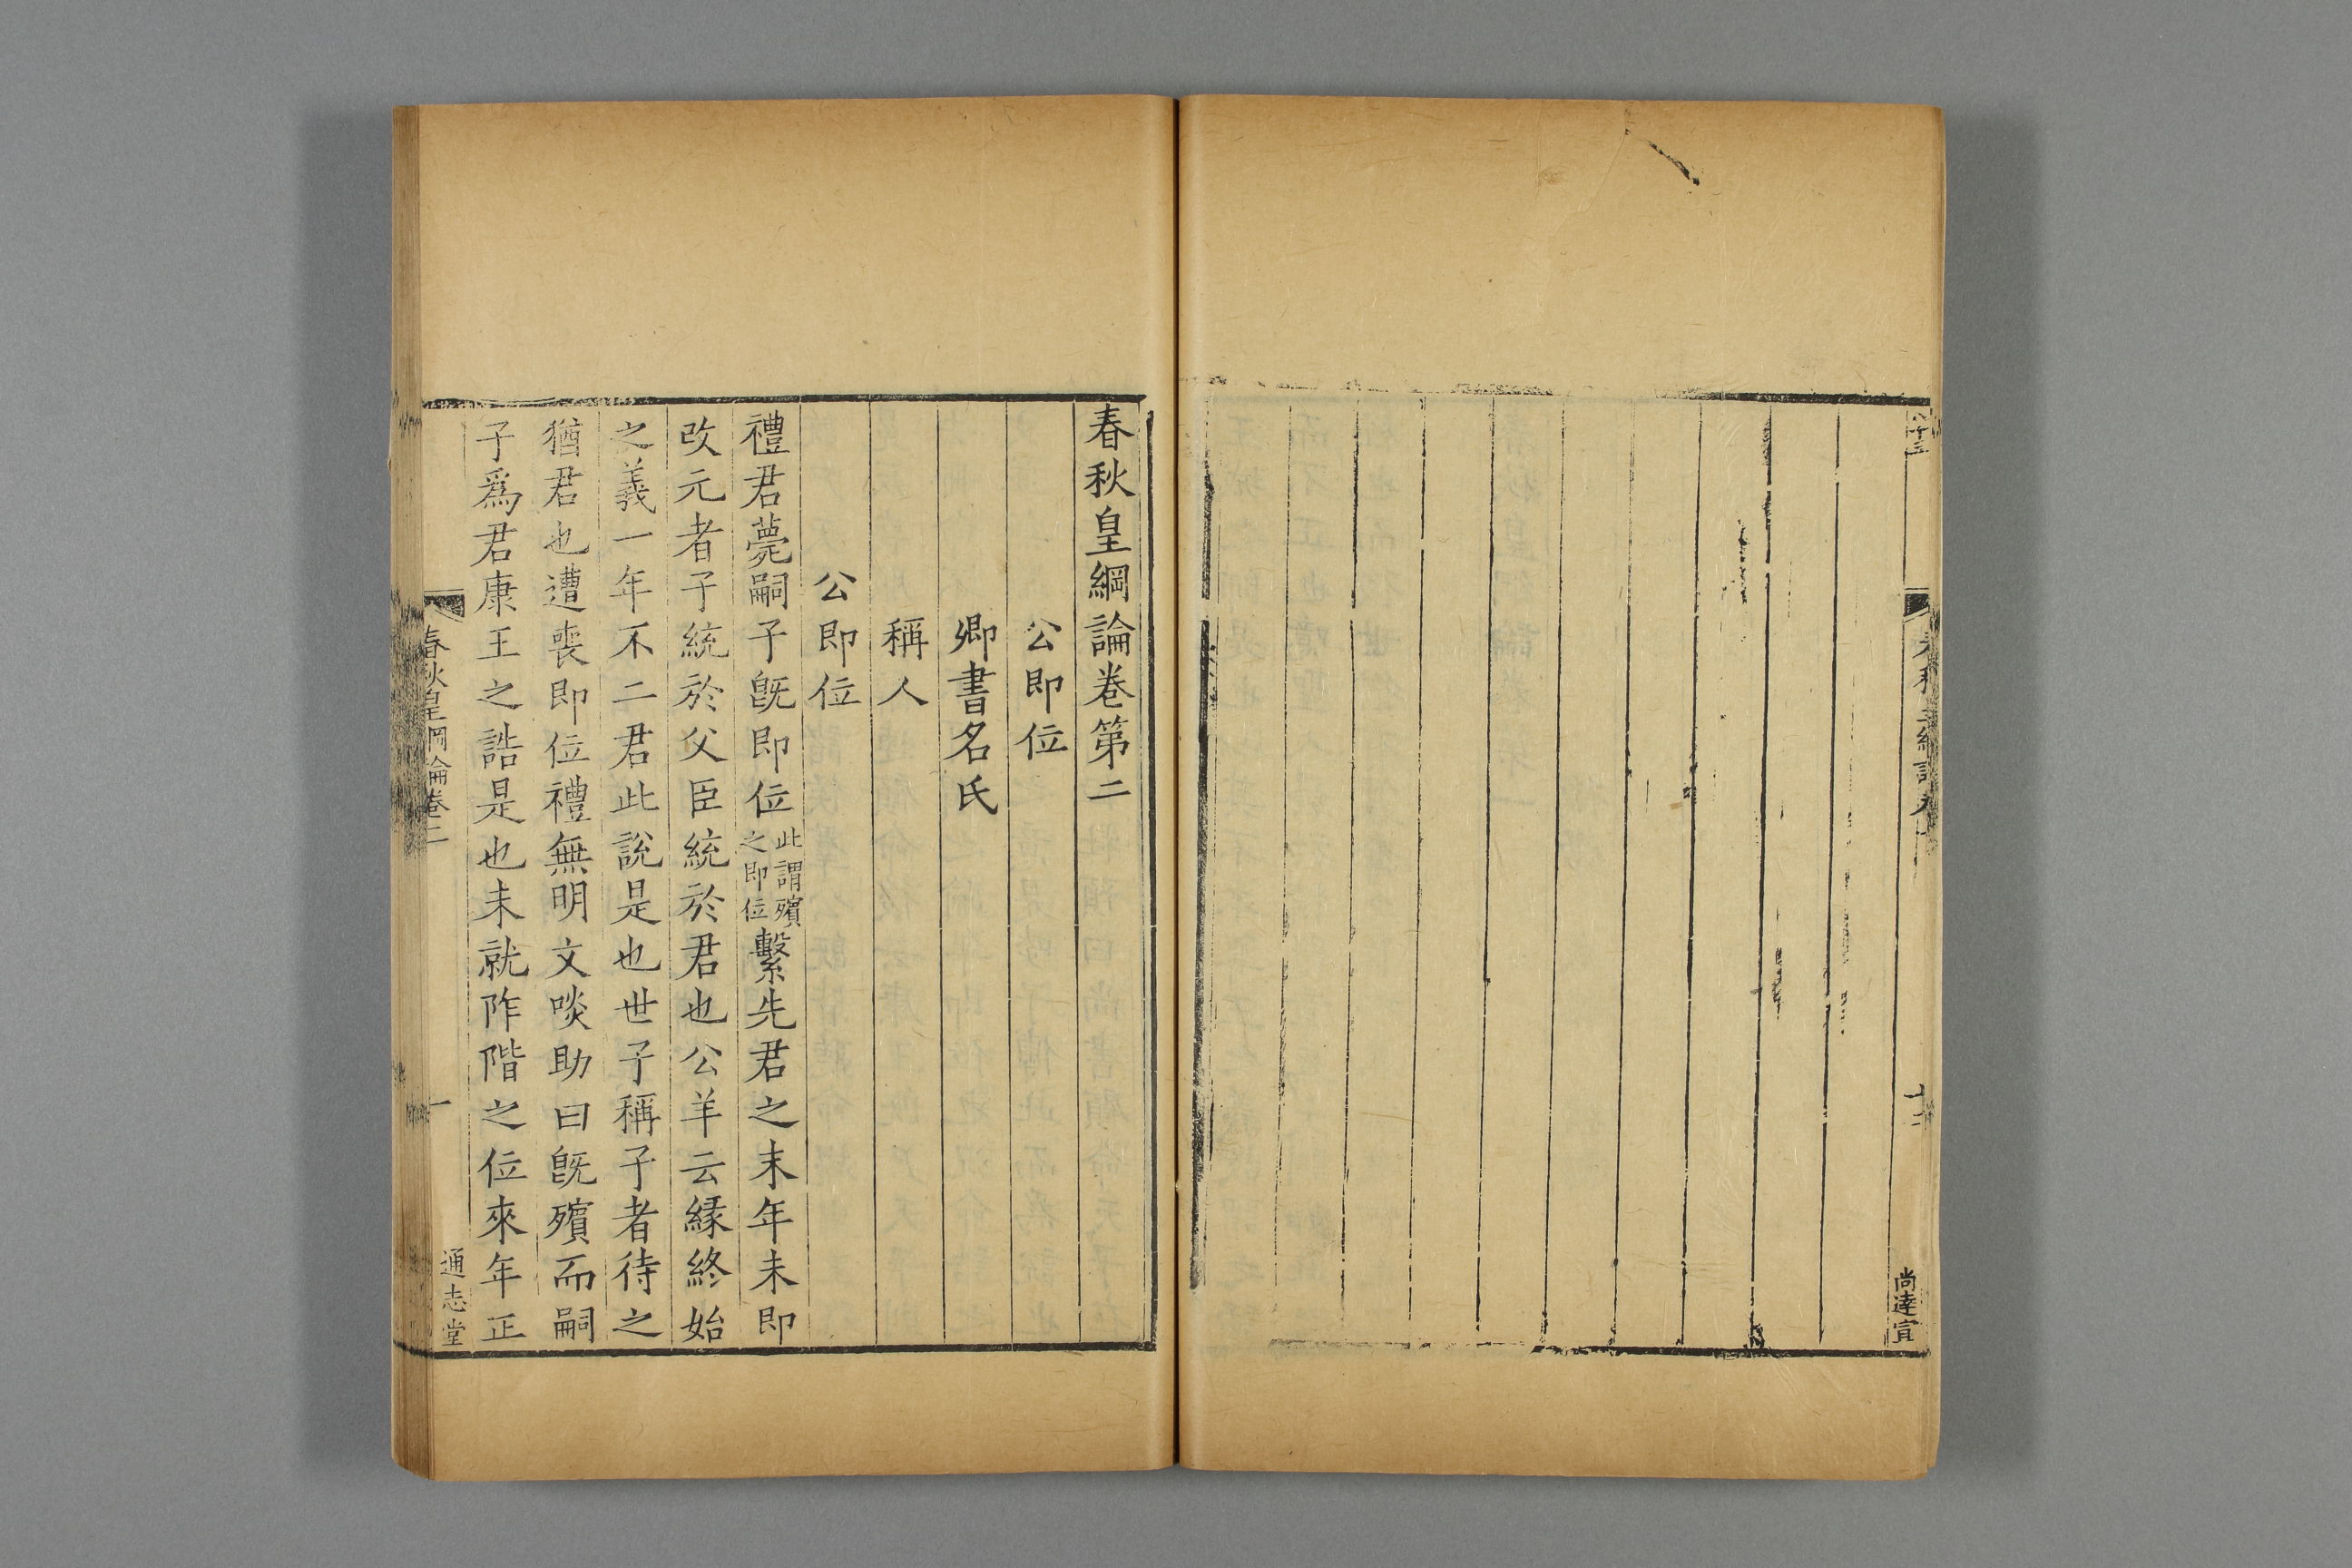 尚逹宣
春秋皇綱論卷第二
公即位
卿書名氏
稱人
公即位
禮君薨嗣子旣即位此謂殯之即位繫先君之末年未即
改元者子統於父臣統於君也公羊云縁終始
之義一年不二君此說是也世子稱子者待之
猶君也遭喪即位禮無明文啖助曰旣殯而嗣
子爲君康王之誥是也未就阼階之位來年正
春秋皇綱論卷二
一
通志堂